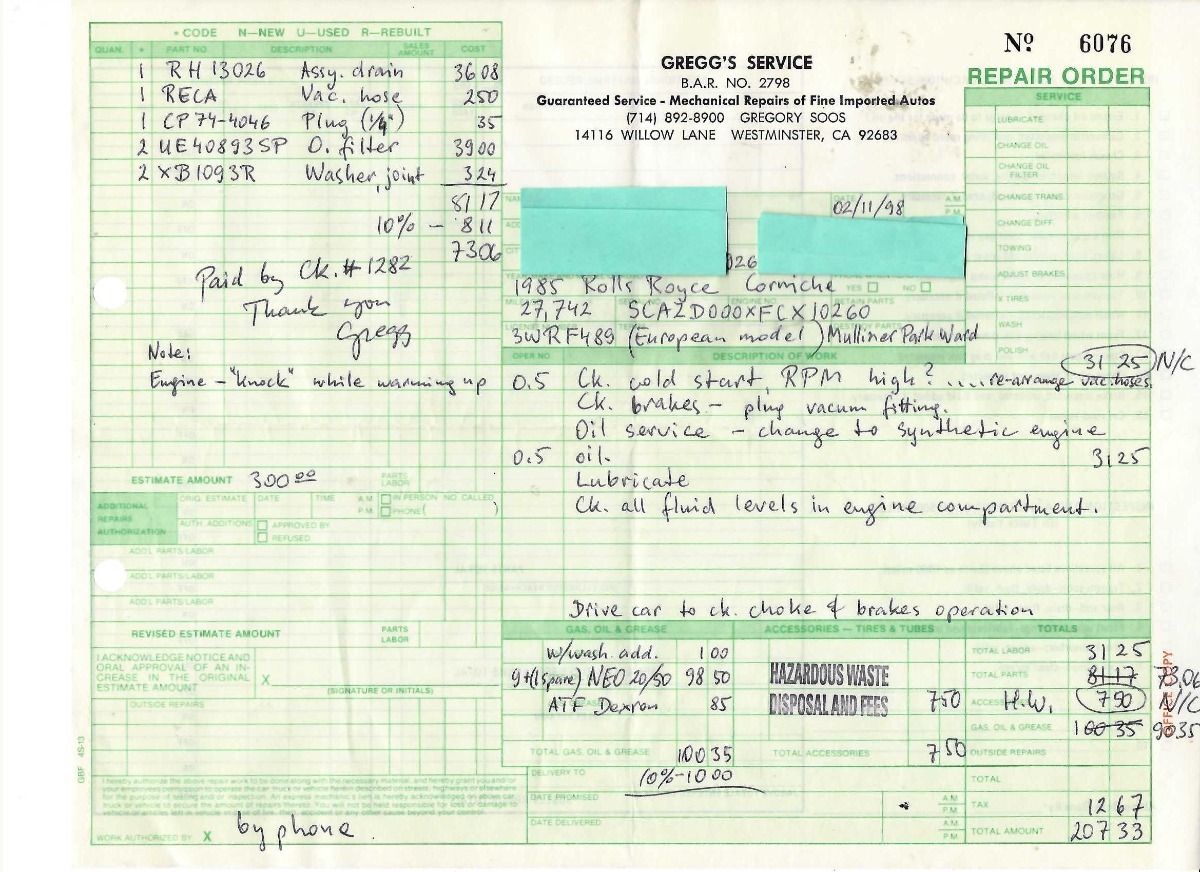 * CODE N—NEW U—USED R—REBUILT
QUAN. * PART NO. DESCRIPTION SALES AMOUNT COST
1 RH 13026 Assy. drain 36 08
1 RECA Vac. hose 2 50
1 CP 74-4046 Plug (1/4") 35
2 UE40893SP O. filter 39 00
2 XB1093R Washer, joint 3 24
81 17
10% – 8 11
73 06
Paid by Ck. # 1282
Thank you
Gregg
Note:
Engine – "knock" while warming up
ESTIMATE AMOUNT 300 00 PARTS LABOR
ADDITIONAL REPAIRS AUTHORIZATION
ORIG. ESTIMATE DATE TIME A.M. P.M. IN PERSON NO. CALLED PHONE ( )
AUTH. ADDITIONS APPROVED BY REFUSED
ADD'L PARTS/LABOR
ADD'L PARTS/LABOR
ADD'L PARTS/LABOR
REVISED ESTIMATE AMOUNT PARTS LABOR
I ACKNOWLEDGE NOTICE AND
ORAL APPROVAL OF AN IN-
CREASE IN THE ORIGINAL
ESTIMATE AMOUNT X
(SIGNATURE OR INITIALS)
OUTSIDE REPAIRS
GBF 4S-13
I hereby authorize the above repair work to be done along with the necessary material, and hereby grant you and/or
your employees permission to operate the car truck or vehicle herein described on streets, highways or elsewhere
for the purpose of testing and/or inspection. An express mechanic's lien is hereby acknowledged on above car,
truck or vehicle to secure the amount of repairs thereto. You will not be held responsible for loss or damage to
vehicle or articles left in vehicle in case of fire, theft, accident or any other cause beyond your control.
WORK AUTHORIZED BY X by phone
GREGG'S SERVICE
B.A.R. NO. 2798
Guaranteed Service - Mechanical Repairs of Fine Imported Autos
(714) 892-8900 GREGORY SOOS
14116 WILLOW LANE WESTMINSTER, CA 92683
Nº 6076
REPAIR ORDER
02/11/98 A.M. P.M.
026
1985 Rolls Royce Corniche YES NO
27,742 SCAZD000XFCX10260 RETAIN PARTS
3WRF489 (European model) Mulliner Park Ward
SERVICE
LUBRICATE
CHANGE OIL
CHANGE OIL FILTER
CHANGE TRANS.
CHANGE DIFF.
TOWING
ADJUST BRAKES
X TIRES
WASH
POLISH
OPER NO. DESCRIPTION OF WORK 31 25 N/C
0.5 Ck. cold start, RPM high? .... re-arrange vac. hoses.
Ck. brakes – plug vacum fitting.
Oil service – change to synthetic engine
0.5 oil. 31 25
Lubricate
Ck. all fluid levels in engine compartment.
Drive car to ck. choke & brakes operation
GAS, OIL & GREASE ACCESSORIES — TIRES & TUBES TOTALS
w/wash. add. 1 00 TOTAL LABOR 31 25
9+(1 spare) NEO 20/50 98 50 HAZARDOUS WASTE TOTAL PARTS 81 17 73.06
ATF Dexron 85 DISPOSAL AND FEES 7 50 H.W. 7 50 N/C
GAS, OIL & GREASE 100 35 90 35
TOTAL GAS, OIL & GREASE 100 35 TOTAL ACCESSORIES 7 50 OUTSIDE REPAIRS
DELIVERY TO 10% – 10 00 TOTAL
DATE PROMISED A.M. P.M. TAX 12 67
DATE DELIVERED A.M. P.M. TOTAL AMOUNT 207 33
OFFICE COPY